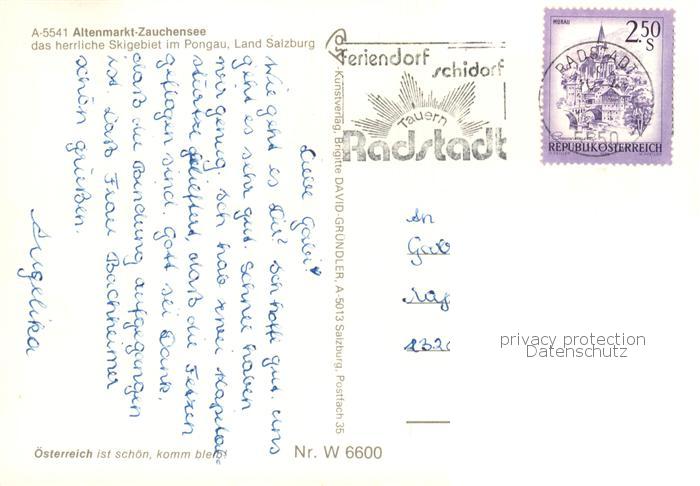 A-5541 Altenmarkt-Zauchensee
das herrliche Skigebiet im Pongau, Land Salzburg
Liebe Gabi!
Wie geht es Dir? Ich hoffe gut. Uns
geht es sehr gut. Schnee haben
wir genug. Ich hab zwei Kapital-
stürze geliefert, daß die Fetzen
geflogen sind. Gott sei Dank,
daß die Bindung aufgegangen
ist. Laß Frau Bachheimer
schön grüßen.
Angelika
Österreich ist schön, komm bleib!
Nr. W 6600
Kunstverlag, Brigitte DAVID-GRÜNDLER, A-5013 Salzburg, Postfach 35
Feriendorf
schidorf
Tauern
Radstadt
RADSTADT
MURAU
2.50
S
REPUBLIK ÖSTERREICH
An
Gab
232
privacy protection
Datenschutz